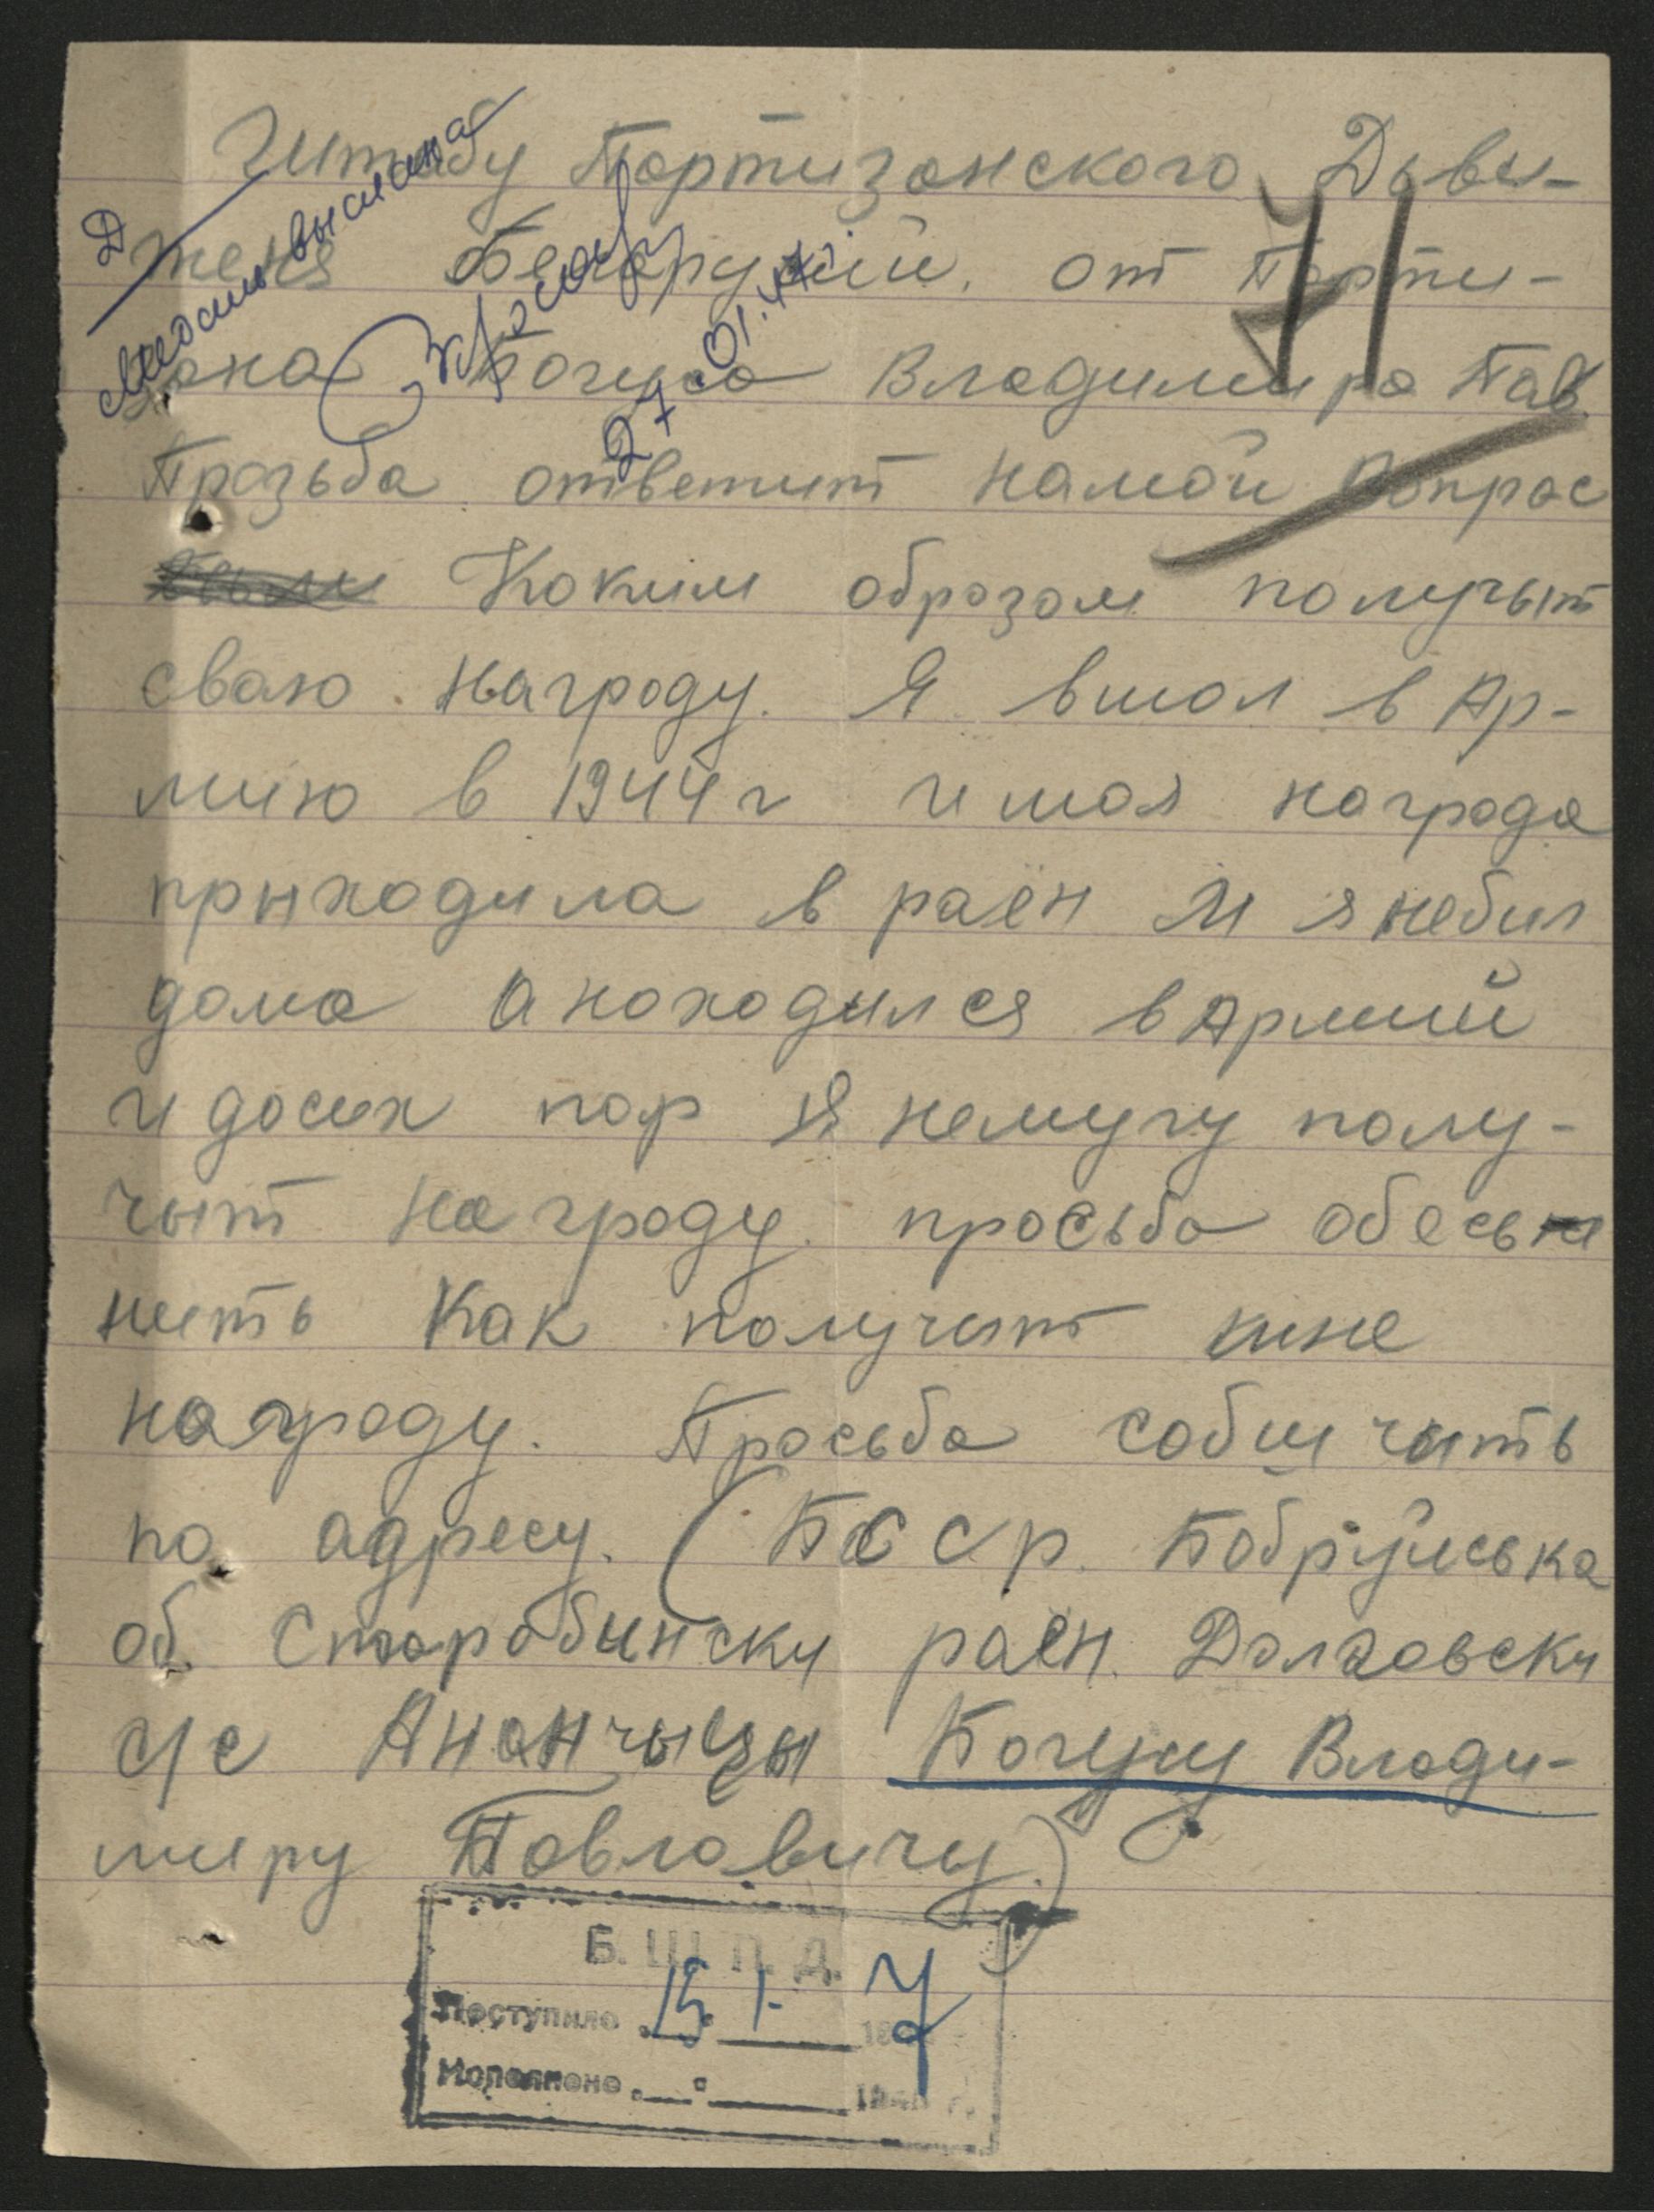 Штабу Партизанского Дьви-
женя Белорусий. от Парти-
зана Богуса Владимира Пав
Прозьба ответит намой вопрос
Каким образом получыт
сваю награду. Я вшол в Ар-
мию в 1944 г и моя награда
прыходила в раён И я небил
дома а находился в Армий
и досих пор Я немугу полу-
чыт награду. просьба обесь
нить Как получит мне
награду. Прасьба собшчить
по адресу. (БССР. Бобруйська
об. Старобынски раен. Долговски
с/с Ананчыцы Богусу Влади-
миру Павловичу)
Д
Медаль выслана
27.01.47г.
71
Б. Ш. П. Д.
Поступило 15. 1- 7
Исполнено 194 г.